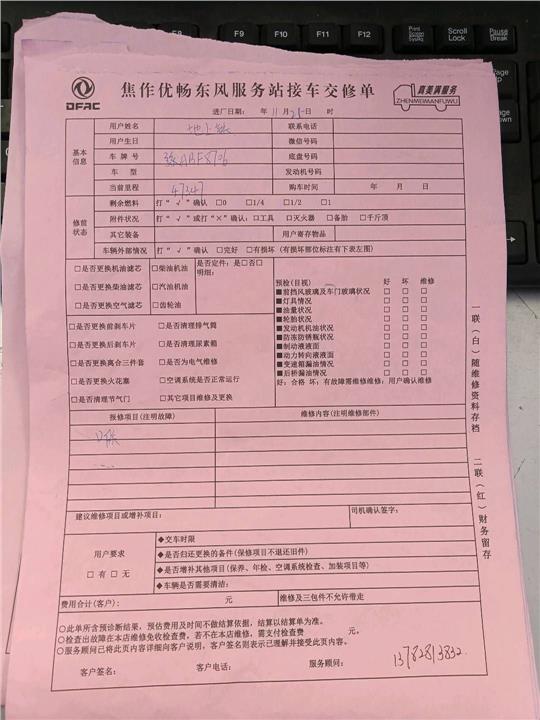 F9 F10 F11 F12
Print Screen SysRq
Scroll Lock
Pause Break
DFAC
焦作优畅东风服务站接车交修单
真美满服务
ZHENMEIMANFUWU
进厂日期: 年 11 月 25 日 时
基本信息
用户姓名 地上铁 联系电话
用户生日 微信号码
车牌号 底盘号码
车 型 发动机号码
当前里程 47347 购车时间 年 月 日
修前状态
剩余燃料 打“√”确认 □0 □1/4 □1/2 □1
附件状况 打“√”或打“×”确认: □工具 □灭火器 □备胎 □千斤顶
其它装备 用户寄存物品
车辆外部情况 打“√”确认 □完好 □有损坏 (有损坏部位标注有下表左图)
□是否更换机油滤芯 □柴油机油
□是否更换柴油滤芯 □汽油机油
□是否更换空气滤芯 □齿轮油
是否定件: 是□否□
明细:
□是否更换前刹车片 □是否清理排气筒
□是否更换后刹车片 □是否清理尿素箱
□是否更换离合三件套 □是否为电气维修
□是否更换火花塞 □空调系统是否正常运行
□是否清理节气门 □其它项目维修及更换
预检(目视) 好 坏 维修
■前挡风玻璃及车门玻璃状况 □ □ □
■灯具情况 □ □ □
■油量状况 □ □ □
■轮胎状况 □ □ □
■发动机机油状况 □ □ □
■防冻防锈瓶状况 □ □ □
■制动液液面 □ □ □
■动力转向液液面 □ □ □
■变速箱漏油情况 □ □ □
■后桥漏油情况 □ □ □
好: 合格 坏: 有故障需维修维修: 用户确认维修
报修项目(注明故障) 维修内容(注明维修部件)
建议维修项目或增补项目: 司机确认签字:
用户要求
□有 □无
◆交车时限
◆是否归还更换的备件(保修项目不退还旧件)
◆是否增补其他项目(保养、年检、空调系统检查、加装项目等)
◆车辆是否需要清洁:
费用合计(客户): 元 维修及三包件不允许带走
○此单所含预诊断结果, 预估费用及时间不做结算依据, 结算以结算单为准。
○检查出故障在本店维修免收检查费, 若不在本店维修, 需支付检查费 元。
○服务顾问已将此页内容详细向客户说明, 客户签则表示已理解并接受此页内容。
客户签名: 客户电话: 服务顾问: 13782813832
一联(白)随维修资料存档
二联(红)财务留存